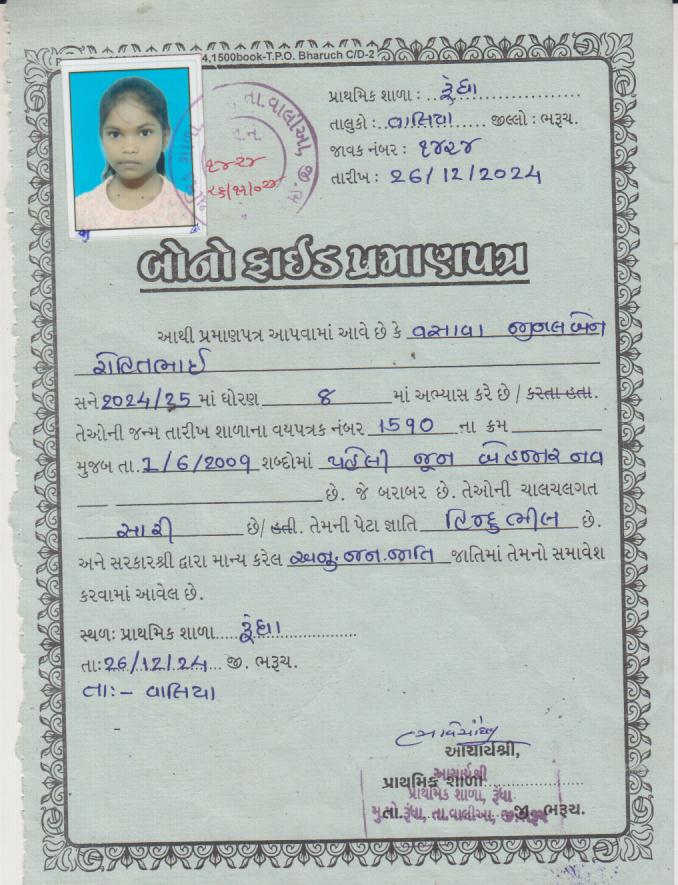 4,1500book-T.P.O. Bharuch C/D-2
પ્રાથમિક શાળા : રૂંધા
તા.વાલીઆ, જી.
તાલુકો : વાલિયા જીલ્લો : ભરૂચ.
જાવક નંબર : ૧૪૨૪
૧૪૨૪
તારીખ : 26/12/2024
બોનો ફાઈડ પ્રમાણપત્ર
આથી પ્રમાણપત્ર આપવામાં આવે છે કે વસાવા જીનલબેન
રોહિતભાઈ
સને 2024/25 માં ધોરણ 8 માં અભ્યાસ કરે છે / કરતા હતા.
તેઓની જન્મ તારીખ શાળાના વયપત્રક નંબર 1590 ના ક્રમ
મુજબ તા. 1/6/2009 શબ્દોમાં પહેલી જૂન બેહજાર નવ
છે. જે બરાબર છે. તેઓની ચાલચલગત
સારી છે/ હતી. તેમની પેટા જ્ઞાતિ હિન્દુ ભીલ છે.
અને સરકારશ્રી દ્વારા માન્ય કરેલ અનુ. જન. જાતિ જાતિમાં તેમનો સમાવેશ
કરવામાં આવેલ છે.
સ્થળ: પ્રાથમિક શાળા રૂંધા
તા: 26/12/24 જી. ભરૂચ.
તા:- વાલિયા
આચાર્યશ્રી,
આચાર્યશ્રી
પ્રાથમિક શાળા
પ્રાથમિક શાળા, રૂંધા
તા. જી. ભરૂચ.
મુ.રૂંધા, તા.વાલીઆ, જી.ભરૂચ